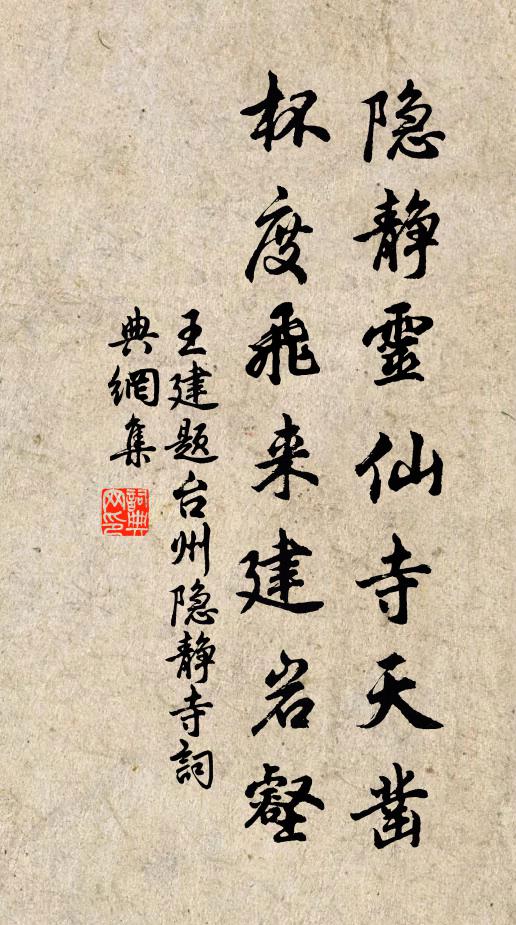 隐静靈仙寺天凿
杯度飛来建岩壑
王建题台州隐静寺詞
典網集
詞典網印